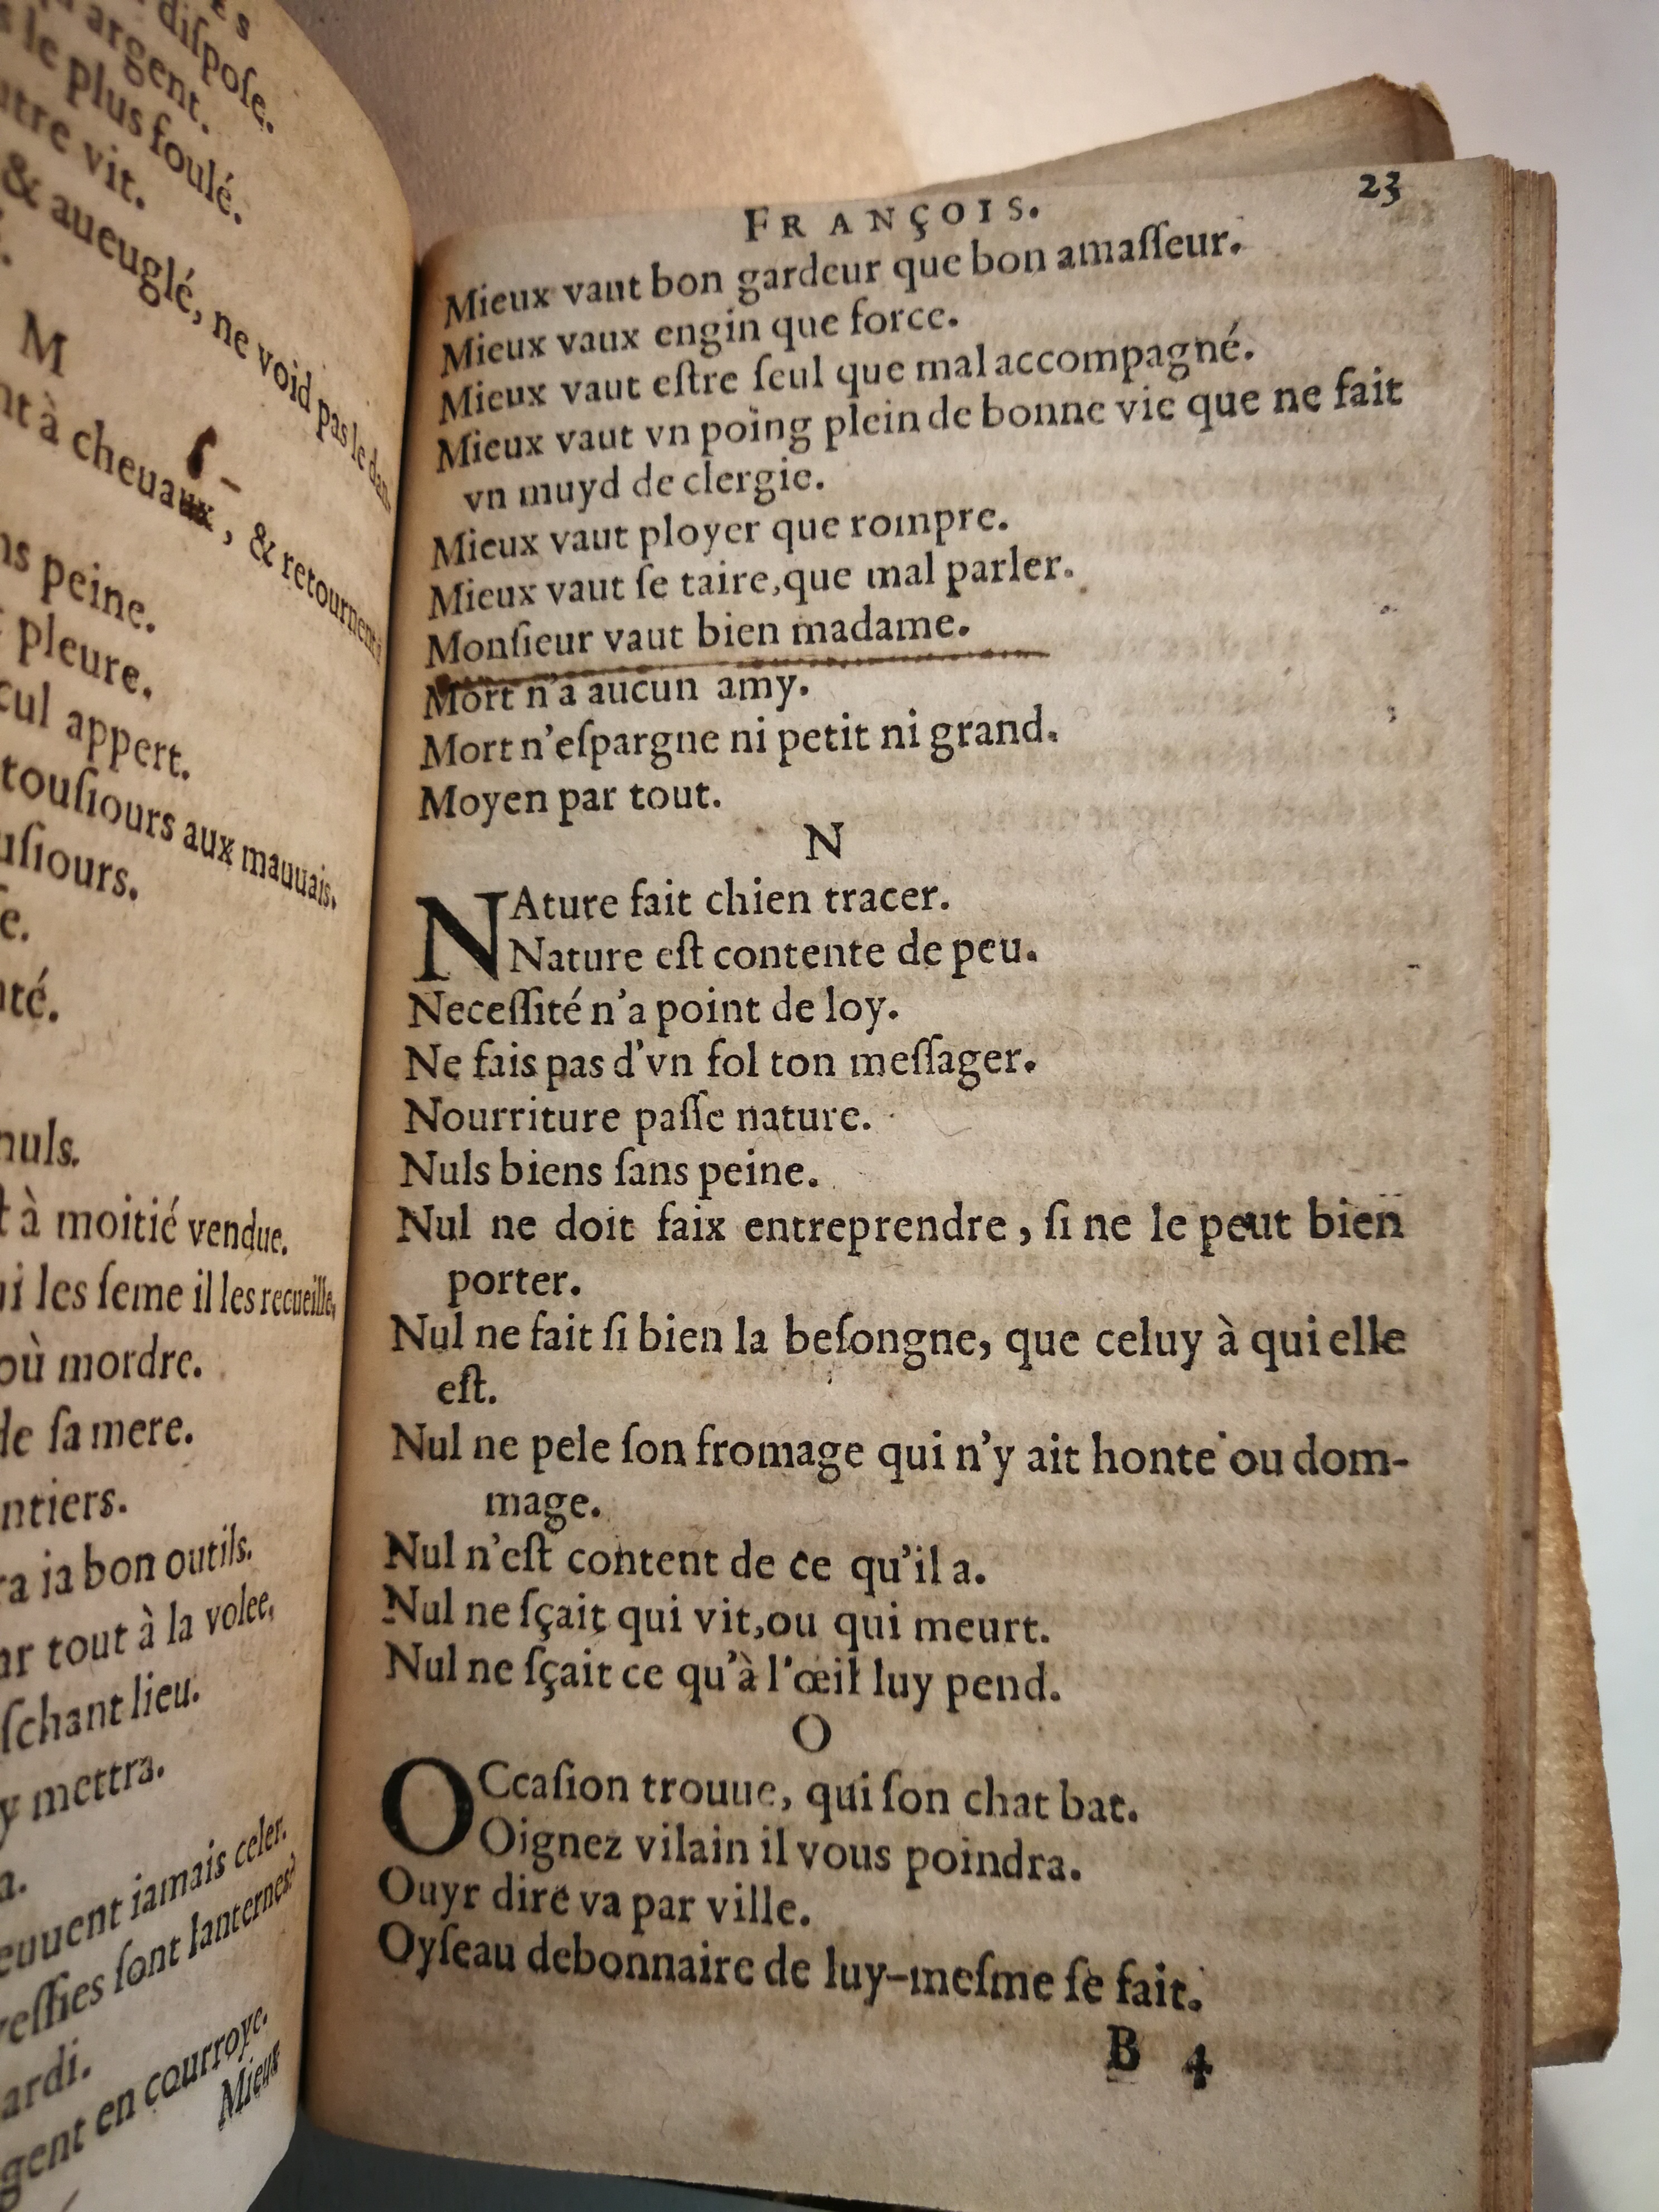 diſpoſe.
argent.
le plus foulé.
vit.
& aueuglé, ne void pas le
M
à cheuaux, & retournent
peine.
pleure.
appert.
touſiours aux mauuais.
à moitié vendue.
les ſeme il les recueille,
où mordre.
de ſa mere.
ia bon outils.
tout à la volee,
lieu.
y mettra.
iamais celer.
ſont lanternes?
en courroye.
Mieux
FRANÇOIS. 23
Mieux vaut bon gardeur que bon amaſſeur.
Mieux vaux engin que force.
Mieux vaut eſtre ſeul que mal accompagné.
Mieux vaut vn poing plein de bonne vie que ne fait
vn muyd de clergie.
Mieux vaut ployer que rompre.
Mieux vaut ſe taire,que mal parler.
Monſieur vaut bien madame.
Mort n'a aucun amy.
Mort n'eſpargne ni petit ni grand.
Moyen par tout.
N
NAture fait chien tracer.
Nature eſt contente de peu.
Neceſſité n'a point de loy.
Ne fais pas d'vn fol ton meſſager.
Nourriture paſſe nature.
Nuls biens ſans peine.
Nul ne doit faix entreprendre, ſi ne le peut bien
porter.
Nul ne fait ſi bien la beſongne, que celuy à qui elle
eſt.
Nul ne pele ſon fromage qui n'y ait honte ou dom-
mage.
Nul n'eſt content de ce qu'il a.
Nul ne ſçait qui vit,ou qui meurt.
Nul ne ſçait ce qu'à l'œil luy pend.
O
OCcaſion trouue, qui ſon chat bat.
Oignez vilain il vous poindra.
Ouyr dire va par ville.
Oyſeau debonnaire de luy-meſme ſe fait.
B 4